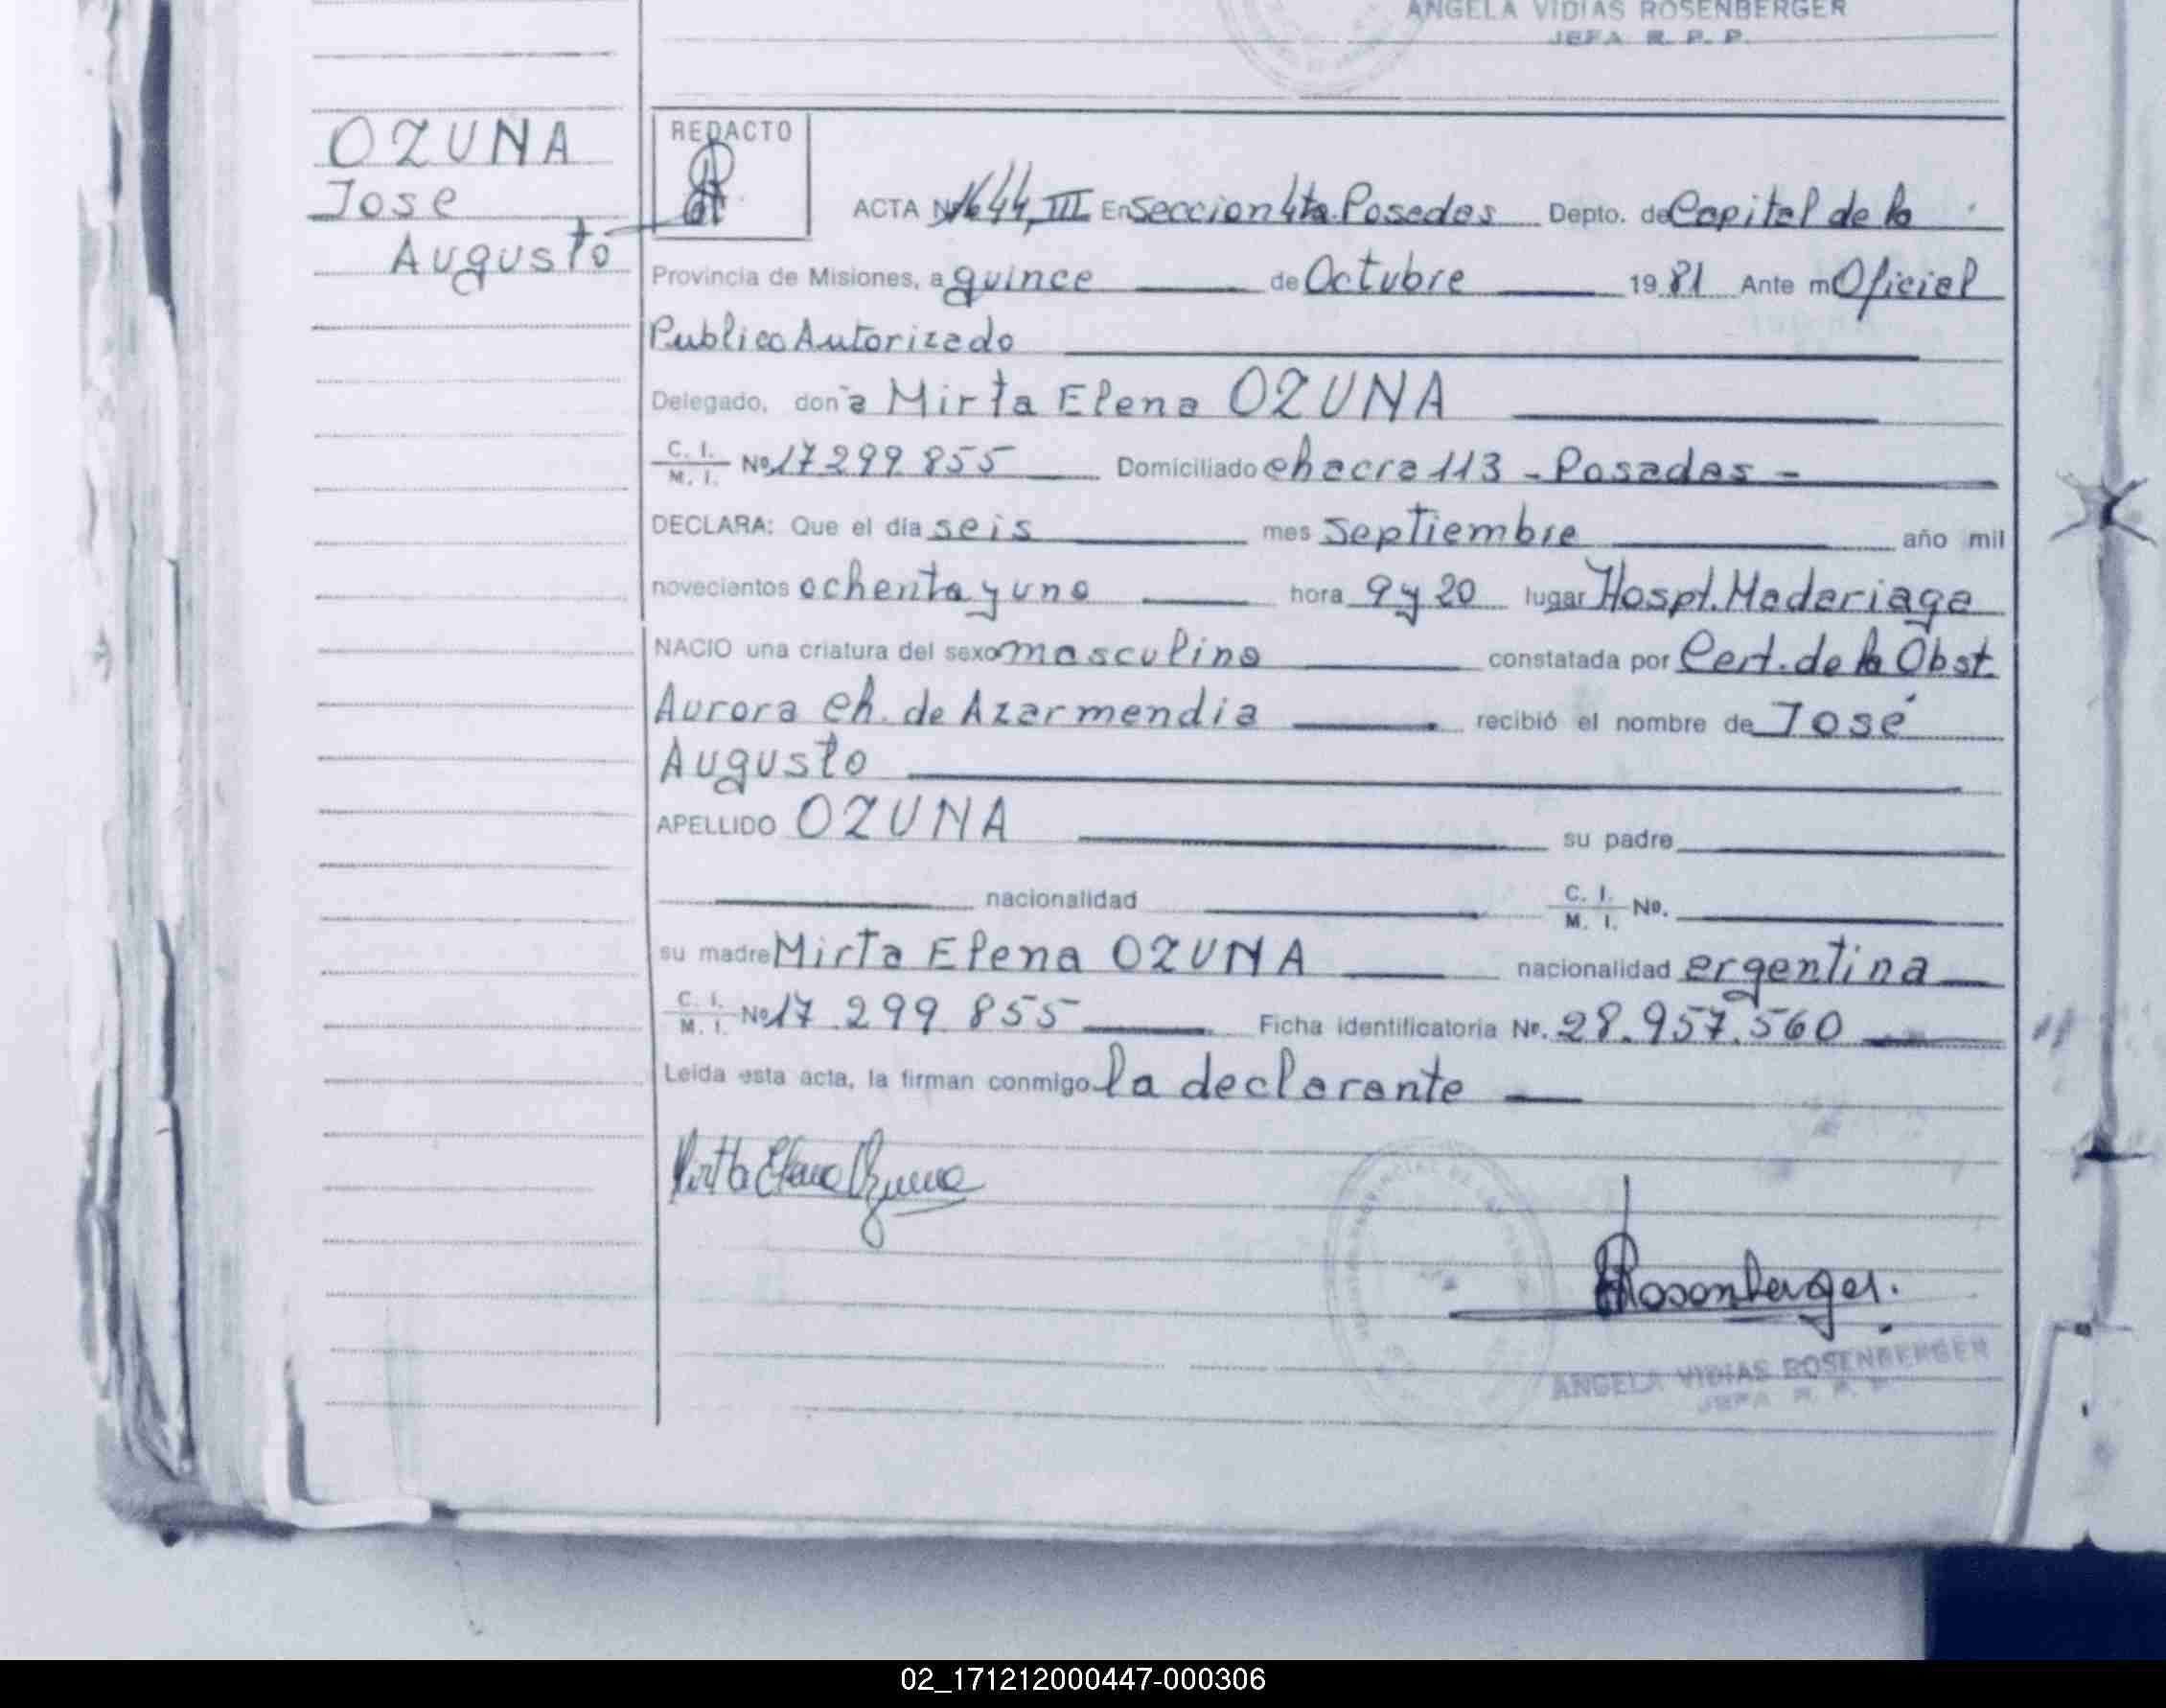 ANGELA VIDIAS ROSENBERGER
JEFA R. P. P.
OZUNA
Jose
Augusto
REDACTO
ACTA Nº 1644, III En Seccion 4ta. Posadas Depto. de Capital de la
Provincia de Misiones, a quince de Octubre 1981 Ante m Oficial
Publico Autorizado
Delegado, don̄a Mirta Elena OZUNA
C. I. M. I. Nº 17 299 855 Domiciliado chacra 113 - Posadas -
DECLARA: Que el día seis mes Septiembre año mil
novecientos ochenta y uno hora 9 y 20 lugar Hospt. Madariaga
NACIO una criatura del sexo masculino constatada por Cert. de la Obst.
Aurora Ch. de Azarmendia recibió el nombre de José
Augusto
APELLIDO OZUNA su padre
nacionalidad C. I. M. I. Nº.
su madre Mirta Elena OZUNA nacionalidad argentina
C. I. M. I. Nº 17.299 855 Ficha identificatoria Nº. 28.957.560
Leída esta acta, la firman conmigo la declarante
Mirtta Elena Ozuna
Rosenberger.
ANGELA VIDIAS ROSENBERGER
JEFA R. P. P.
02_171212000447-000306